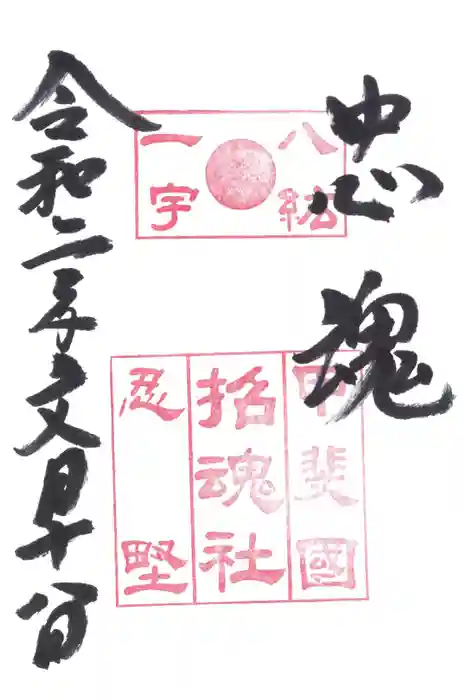 忠魂
八紘
一宇
甲斐國
招魂社
忍野
令和二年文月十八日